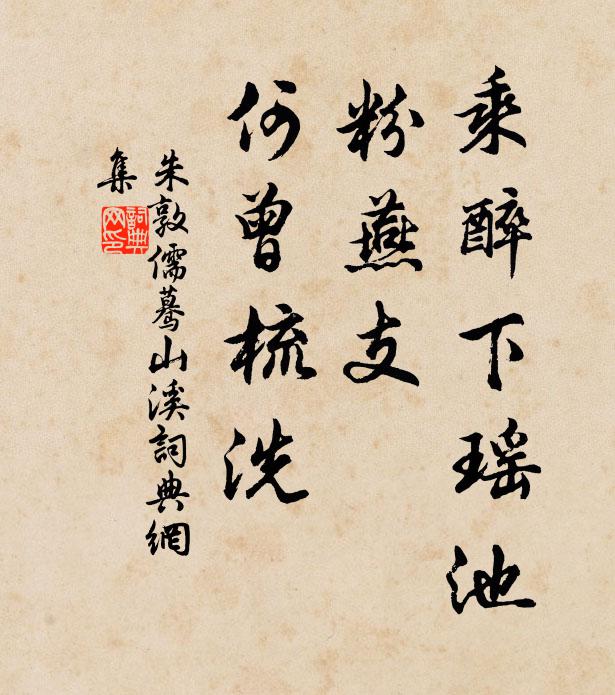 乘醉下瑶池
粉燕支
何曾梳洗
朱敦儒蓦山溪詞典網
集
詞典网印